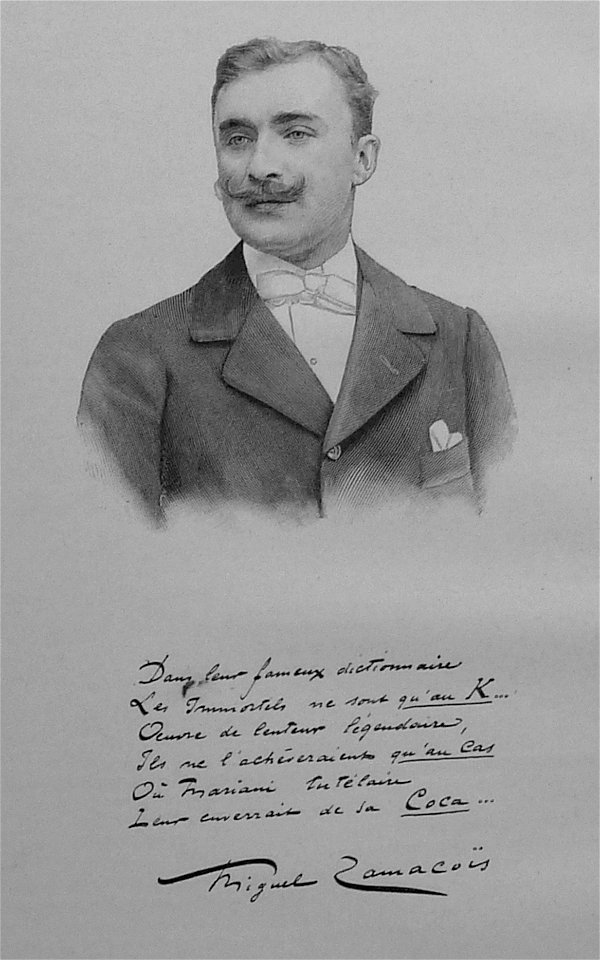 Dans leur fameux dictionnaire
Les Immortels ne sont qu'au K...
Oeuvre de lenteur légendaire,
Ils ne l'achèveraient qu'au cas
Où Mariani tutélaire
Leur enverrait de sa Coca...
Miguel Zamacoïs